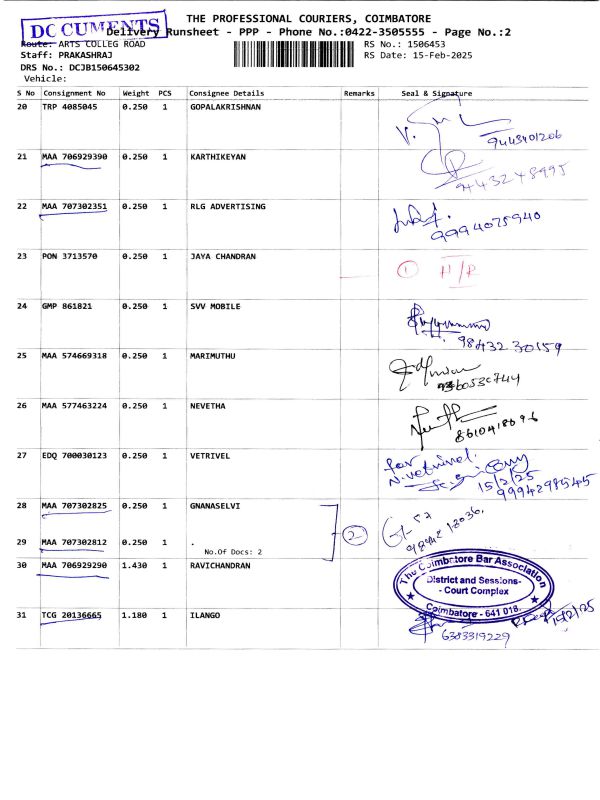 THE PROFESSIONAL COURIERS, COIMBATORE
DOCUMENTS
Delivery Runsheet - PPP - Phone No.:0422-3505555 - Page No.:2
Route: ARTS COLLEG ROAD RS No.: 1506453
Staff: PRAKASHRAJ RS Date: 15-Feb-2025
DRS No.: DCJB150645302
Vehicle:
S No Consignment No Weight PCS Consignee Details Remarks Seal & Signature
20 TRP 4085045 0.250 1 GOPALAKRISHNAN
9443401206
21 MAA 706929390 0.250 1 KARTHIKEYAN
9443248995
22 MAA 707302351 0.250 1 RLG ADVERTISING
9994075940
23 PON 3713570 0.250 1 JAYA CHANDRAN 1 H/R
24 GMP 861821 0.250 1 SVV MOBILE
98432 30159
25 MAA 574669318 0.250 1 MARIMUTHU
26 MAA 577463224 0.250 1 NEVETHA
27 EDQ 700030123 0.250 1 VETRIVEL
for
N.vetrivel.
15/2/25
9994298545
28 MAA 707302825 0.250 1 GNANASELVI
2
29 MAA 707302812 0.250 1 .
No.Of Docs: 2
30 MAA 706929290 1.430 1 RAVICHANDRAN
The Coimbatore Bar Association
District and Sessions-
- Court Complex
Coimbatore - 641 018.
31 TCG 20136665 1.180 1 ILANGO
15/2/25
6383319229